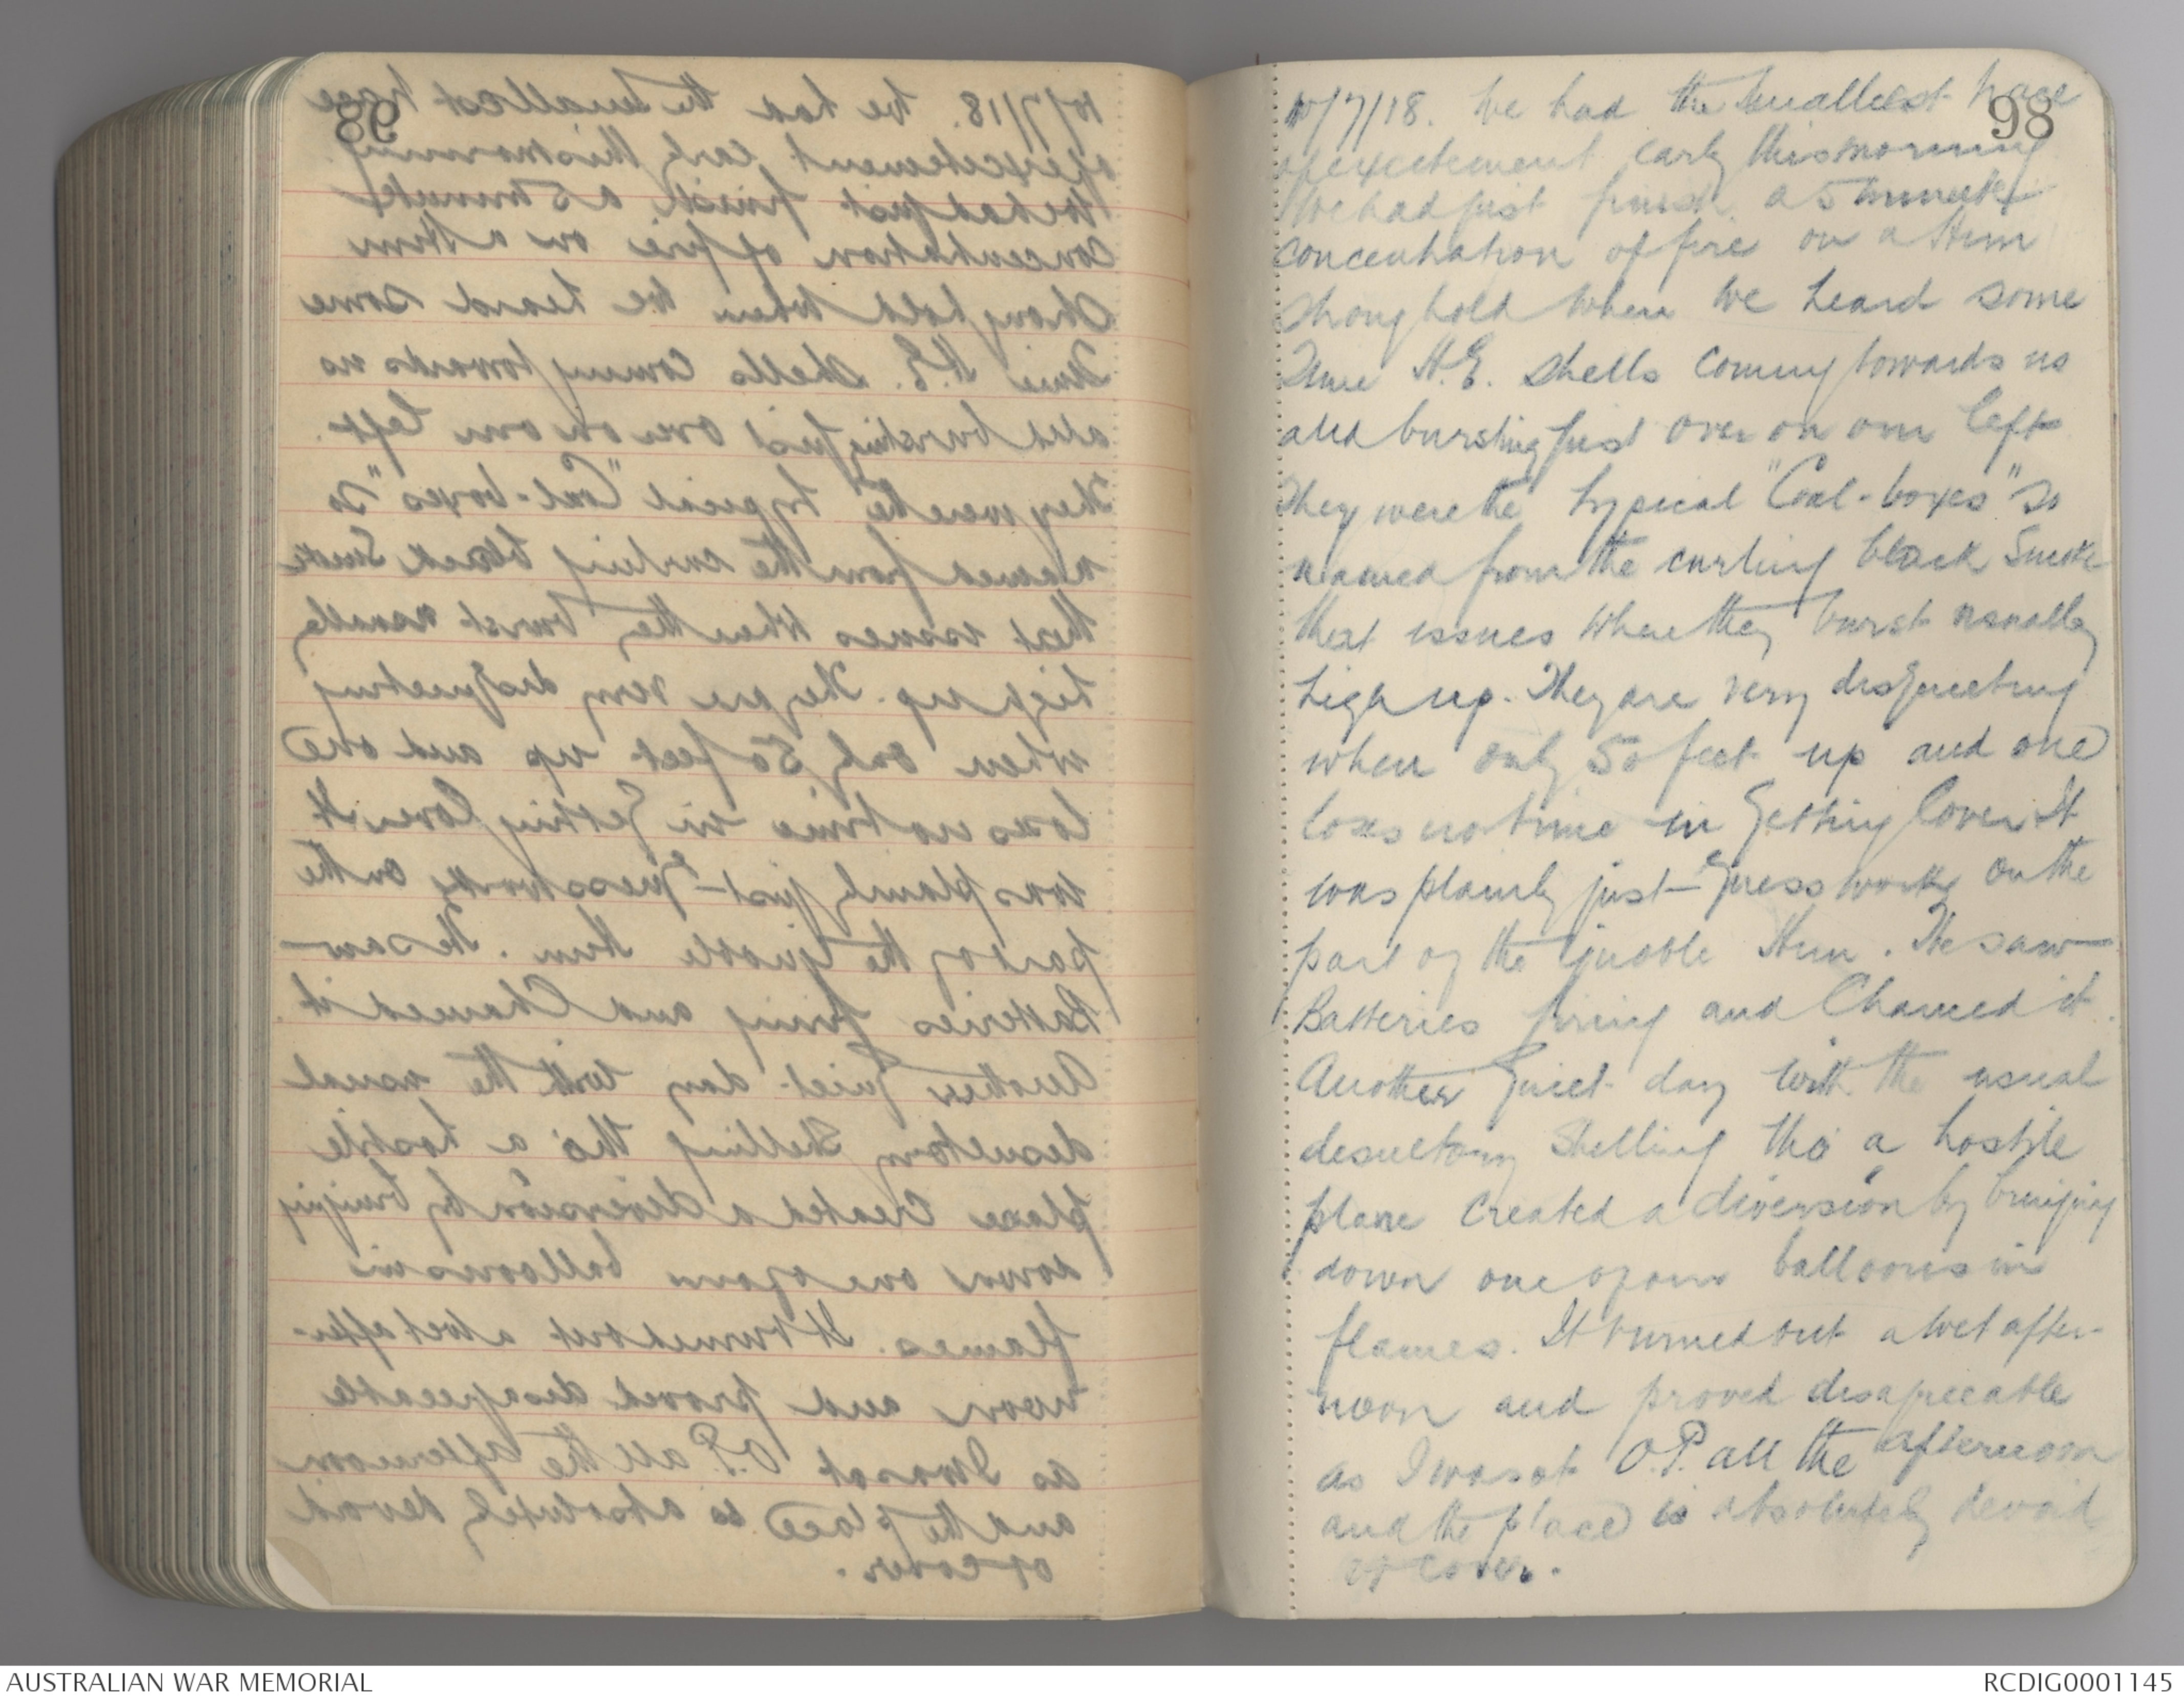 98
10/7/18. We had the smallest trace
of excitement early this morning
We had just finish a 5 minutes
concentration of fire on a Hun
stronghold when we heard some
Time H.E. shells coming towards us
and bursting just over on our left
They were the typical "Coal-boxes" so
named from the curling black Smoke
that issues when they burst usually
high up. They are very disquieting
when only 50 feet up and one
loses no time in getting Cover. It
was plainly just guess work on the
part of the ignoble Hun. He saw
Batteries firing and Chanced it.
Another quiet day with the usual
desultory Shelling tho' a hostile
plane created a diversion by bringing
down one of our balloons in
flames. It turned out a wet after-
noon and proved disagreeable
as I was at O.P. all the afternoon
and the place is absolutely devoid
of cover.
AUSTRALIAN WAR MEMORIAL
RCDIG0001145